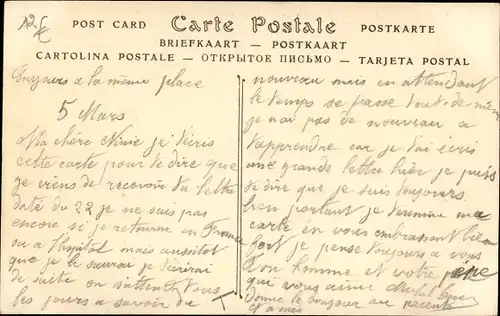 12 €
POST CARD Carte Postale POSTKARTE
BRIEFKAART — POSTKAART
CARTOLINA POSTALE — ОТКРЫТОЕ ПИСЬМО — TARJETA POSTAL
Toujours a la même place
5 Mars
Ma chère Ninie je t'écris
cette carte pour te dire que
je viens de recevoir ta lettre
daté du 22 je ne sais pas
encore si je retourne en France
ou a l'hopital mais aussitot
que je le saurai je t'écrirai
de suite on s'attend tous
les jours a savoir du
nouveau mais en attendant
le temps se passe tout-de-même
je nai pas de nouveau a
t'apprendre car je t'ai écris
une grande lettre hier je puis
te dire que je suis toujours
bien portant je termine ma
carte en vous embrassant bien
fort je pense toujours a vous
Ton homme et votre père
qui vous aime
Donne le bonjour au parents
et amis